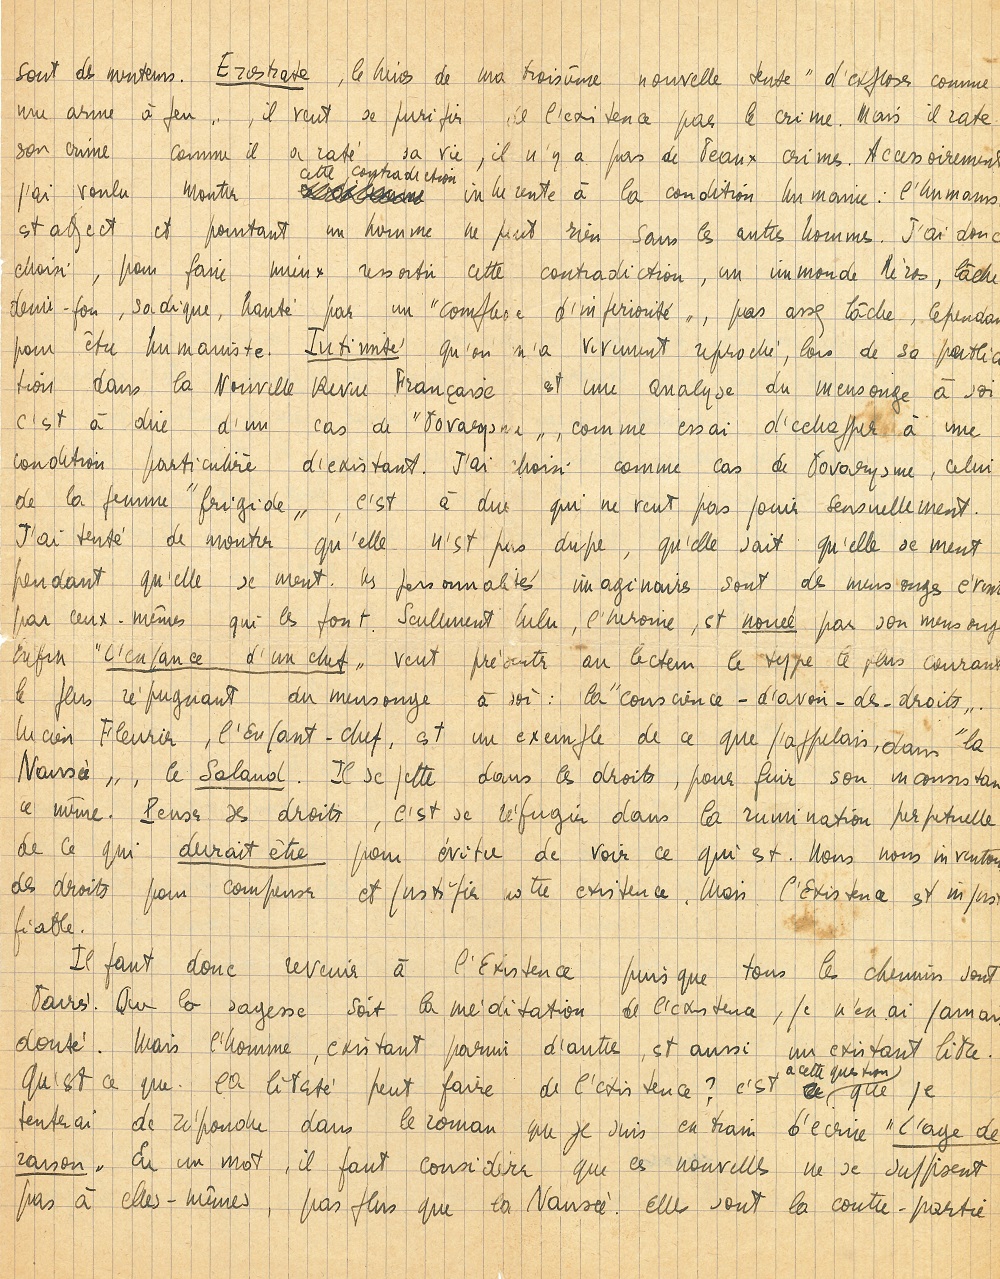 sont des menteurs. Erostrate, le héros de ma troisième nouvelle tente "d'exploser comme
une arme à feu", il veut se purifier de l'existence par le crime. Mais il rate
son crime comme il a raté sa vie, il n'y a pas de beaux crimes. Accessoirement
j'ai voulu montrer cette contradiction inhérente à la condition humaine : l'humanis
est abject et pourtant un homme ne peut rien sans les autres hommes. J'ai donc
choisi, pour faire mieux ressortir cette contradiction, un immonde héros, lâche
demi-fou, sadique, hanté par un "complexe d'infériorité", pas assez lâche, cependan
pour être humaniste. Intimité qu'on m'a vivement reproché, lors de sa publica
tion dans la Nouvelle Revue Française est une analyse du mensonge à soi
c'est à dire d'un cas de "bovarysme", comme essai d'échapper à une
condition particulière d'existant. J'ai choisi comme cas de bovarysme, celui
de la femme "frigide", c'est à dire qui ne veut pas jouir sensuellement.
J'ai tenté de montrer qu'elle n'est pas dupe, qu'elle sait qu'elle se ment
pendant qu'elle se ment. Les personnalités imaginaires sont des mensonges
par ceux-mêmes qui les font. Seulement Lulu, l'héroïne, est nouée par son mensong
Enfin "L'enfance d'un chef" veut présenter au lecteur le type le plus courant
le plus répugnant du mensonge à soi : la "conscience-d'avoir-des-droits".
Lucien Fleurier, l'Enfant-chef, est un exemple de ce que j'appelais, dans "la
Nausée", le Salaud. Il se jette dans les droits, pour fuir son inconsistan
ce même. Penser ses droits, c'est se réfugier dans la rumination perpétuelle
de ce qui devrait être pour éviter de voir ce qui est. Nous nous inventon
des droits pour compenser et justifier notre existence. Mais l'Existence est injust
fiable.
Il faut donc revenir à l'Existence puisque tous les chemins sont
barrés. Que la sagesse soit la méditation de l'existence, je n'en ai jamai
douté. Mais l'homme, existant parmi d'autres, est aussi un existant libre.
Qu'est ce que la liberté peut faire de l'existence? c'est à cette question que je
tenterai de répondre dans le roman que je suis en train d'écrire "L'age de
raison". En un mot, il faut considérer que ces nouvelles ne se suffisent
pas à elles-mêmes, pas plus que la Nausée. Elles sont la contre-partie